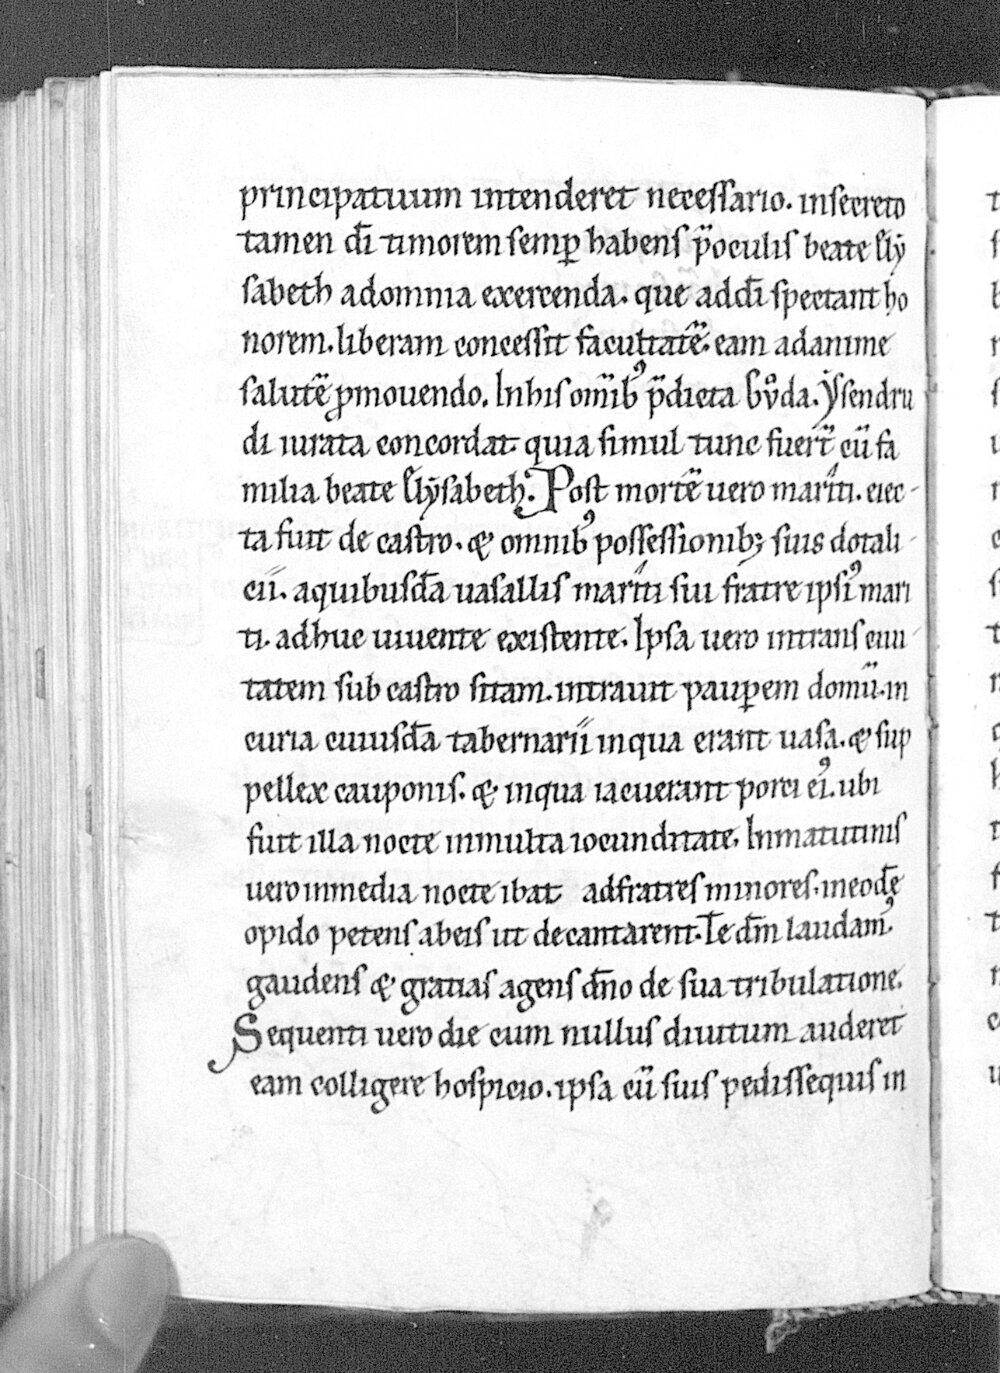 principatuum intenderet necessario. insecreto
tamen dī timorem semꝑ habens p̄oculis beate Elẏ
sabeth adomnia exercenda. que addī spectant ho
norem. liberam concessit facultatē. eam adanime
salutē ꝓmouendo. Inhis om̄ibꝰ p̄dicta Gͦuda. ẏsendru
di iurata concordat. quia simul tunc fuer̄t cū fa
milia beate Elẏsabeth. Post mortē uero mariti. eiec-
ta fuit de castro. & omnibꝰ possessionibꝫ suis dotali
cii. aquibusdā uasallis mariti sui fratre ipsiꝰ mari
ti. adhuc uiuente existente. Ipsa uero intrans ciui
tatem sub castro sitam. intrauit pauꝑem domū. in
curia cuiusdā tabernarii inqua erant uasa. & sup
pellex cauponis. & inqua iacuerant porci eiꝰ. ubi
fuit illa nocte inmulta iocunditate. Inmatutinis
uero inmedia nocte ibat adfratres minores. ineodē
opido petens abeis ut decantarent. Te dm̄ laudamꝰ.
gaudens & gratias agens dn̄o de sua tribulatione.
Sequenti uero die cum nullus diuitum auderet
eam colligere hospicio. ipsa cū suis pedissequis in